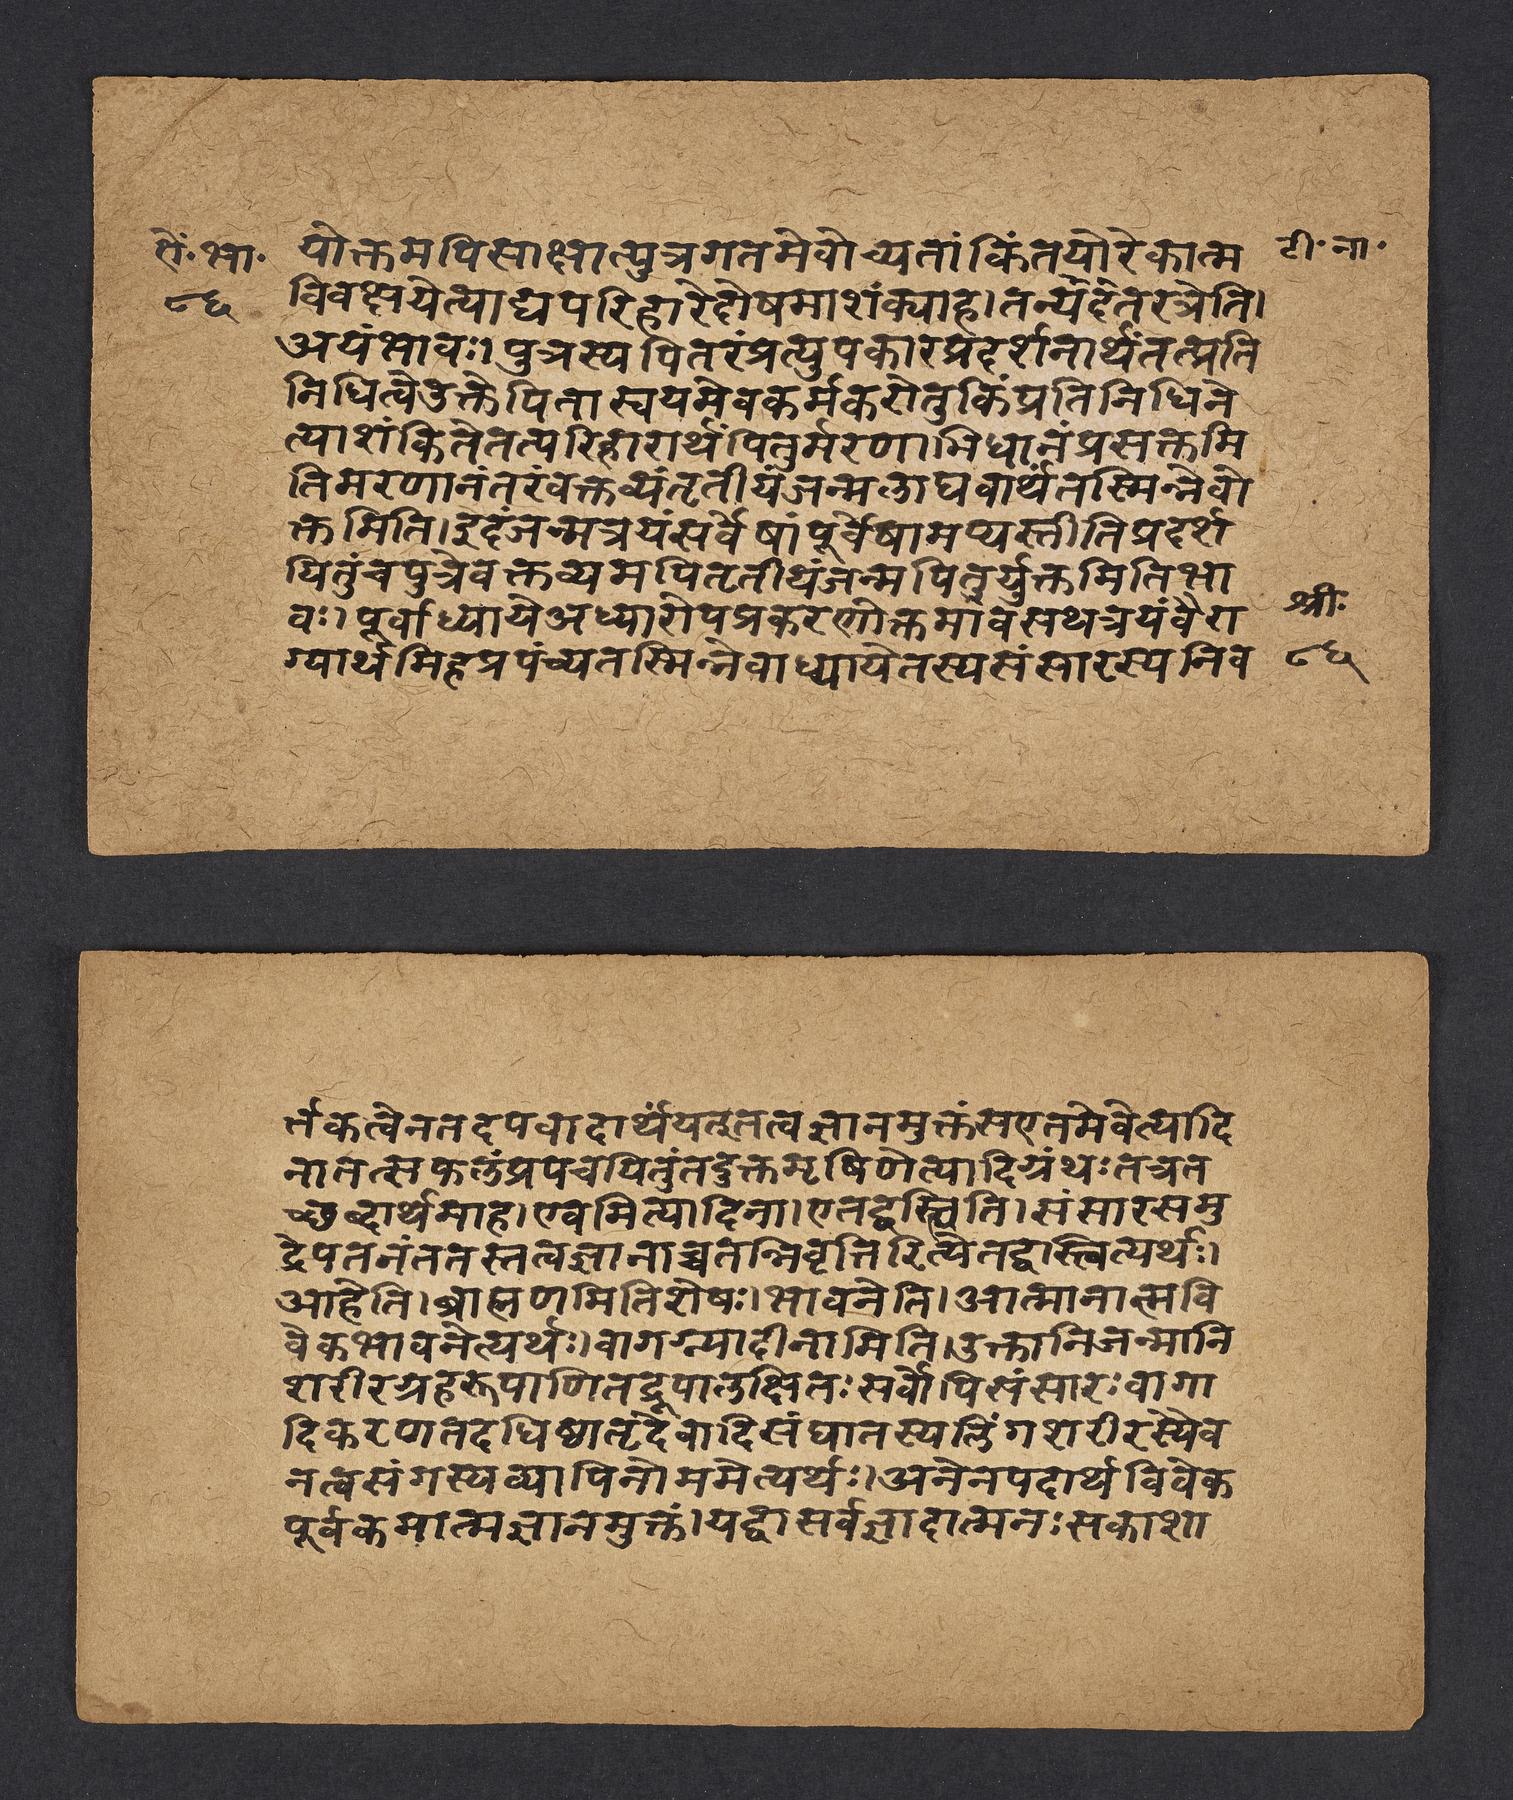 ऐं॰भा॰
८६
योक्तमपिसाक्षात्पुत्रगतमेवोच्यतांकिंतयोरेकात्म
टी॰ना॰
विवक्षयेत्याद्यपरिहारेदोषमाशंक्याह।तन्यदैतरत्रेति।
अयंभावः।पुत्रस्यपितरंप्रत्युपकारप्रदर्शनार्थंतत्प्रति
निधित्वेउक्तेपितास्वयमेवकर्मकरोतुकिंप्रतिनिधिने
त्याशंकितेतत्परिहारार्थंपितुर्मरणाभिधानंप्रसक्तमि
तिमरणानंतरंवक्तव्यंतृतीयंजन्मलाघवार्थंतस्मिन्नेवो
क्तमिति।इदंजन्मत्रयंसर्वेषांपूर्वेषामप्यस्तीतिप्रदर्श
यितुंचपुत्रेवक्तव्यमपितृतीयंजन्मपितुर्युक्तमितिभा
वः।पूर्वाध्यायेअध्यारोपप्रकरणोक्तमावसथत्रयंवैरा
श्रीः
ग्यार्थमिहप्रपंच्यतस्मिन्नेवाध्यायेतस्यसंसारस्यनिव
८६
र्तकत्वेनतदपवादार्थंयत्तत्वज्ञानमुक्तंसएतमेवेत्यादि
नातत्सफलंप्रपचयितुंतदुक्तमृषिणेत्यादिग्रंथःतत्रत
च्छब्दार्थमाह।एवमित्यादिना।एतद्वस्त्विति।संसारसमु
द्रेपतनंततस्तत्वज्ञानाच्चतन्निवृत्तिरित्येतद्वास्त्वित्यर्थः।
आहेति।ब्राह्मणमितिशेषः।भावनेति।आत्मानात्मवि
वेकभावनेत्यर्थः।वागग्न्यादीनामिति।उक्तानिजन्मानि
शरीरग्रहरूपाणितद्रूपालक्षितःसर्वोपिसंसारःवागा
दिकरणतदधिष्ठातृदेवादिसंघातस्यलिंगशरीरस्यैव
नत्वसंगस्यव्यापिनोममेत्यर्थः।अनेनपदार्थविवेक
पूर्वकमात्मज्ञानमुक्तं।यद्वासर्वज्ञादात्मनःसकाशा